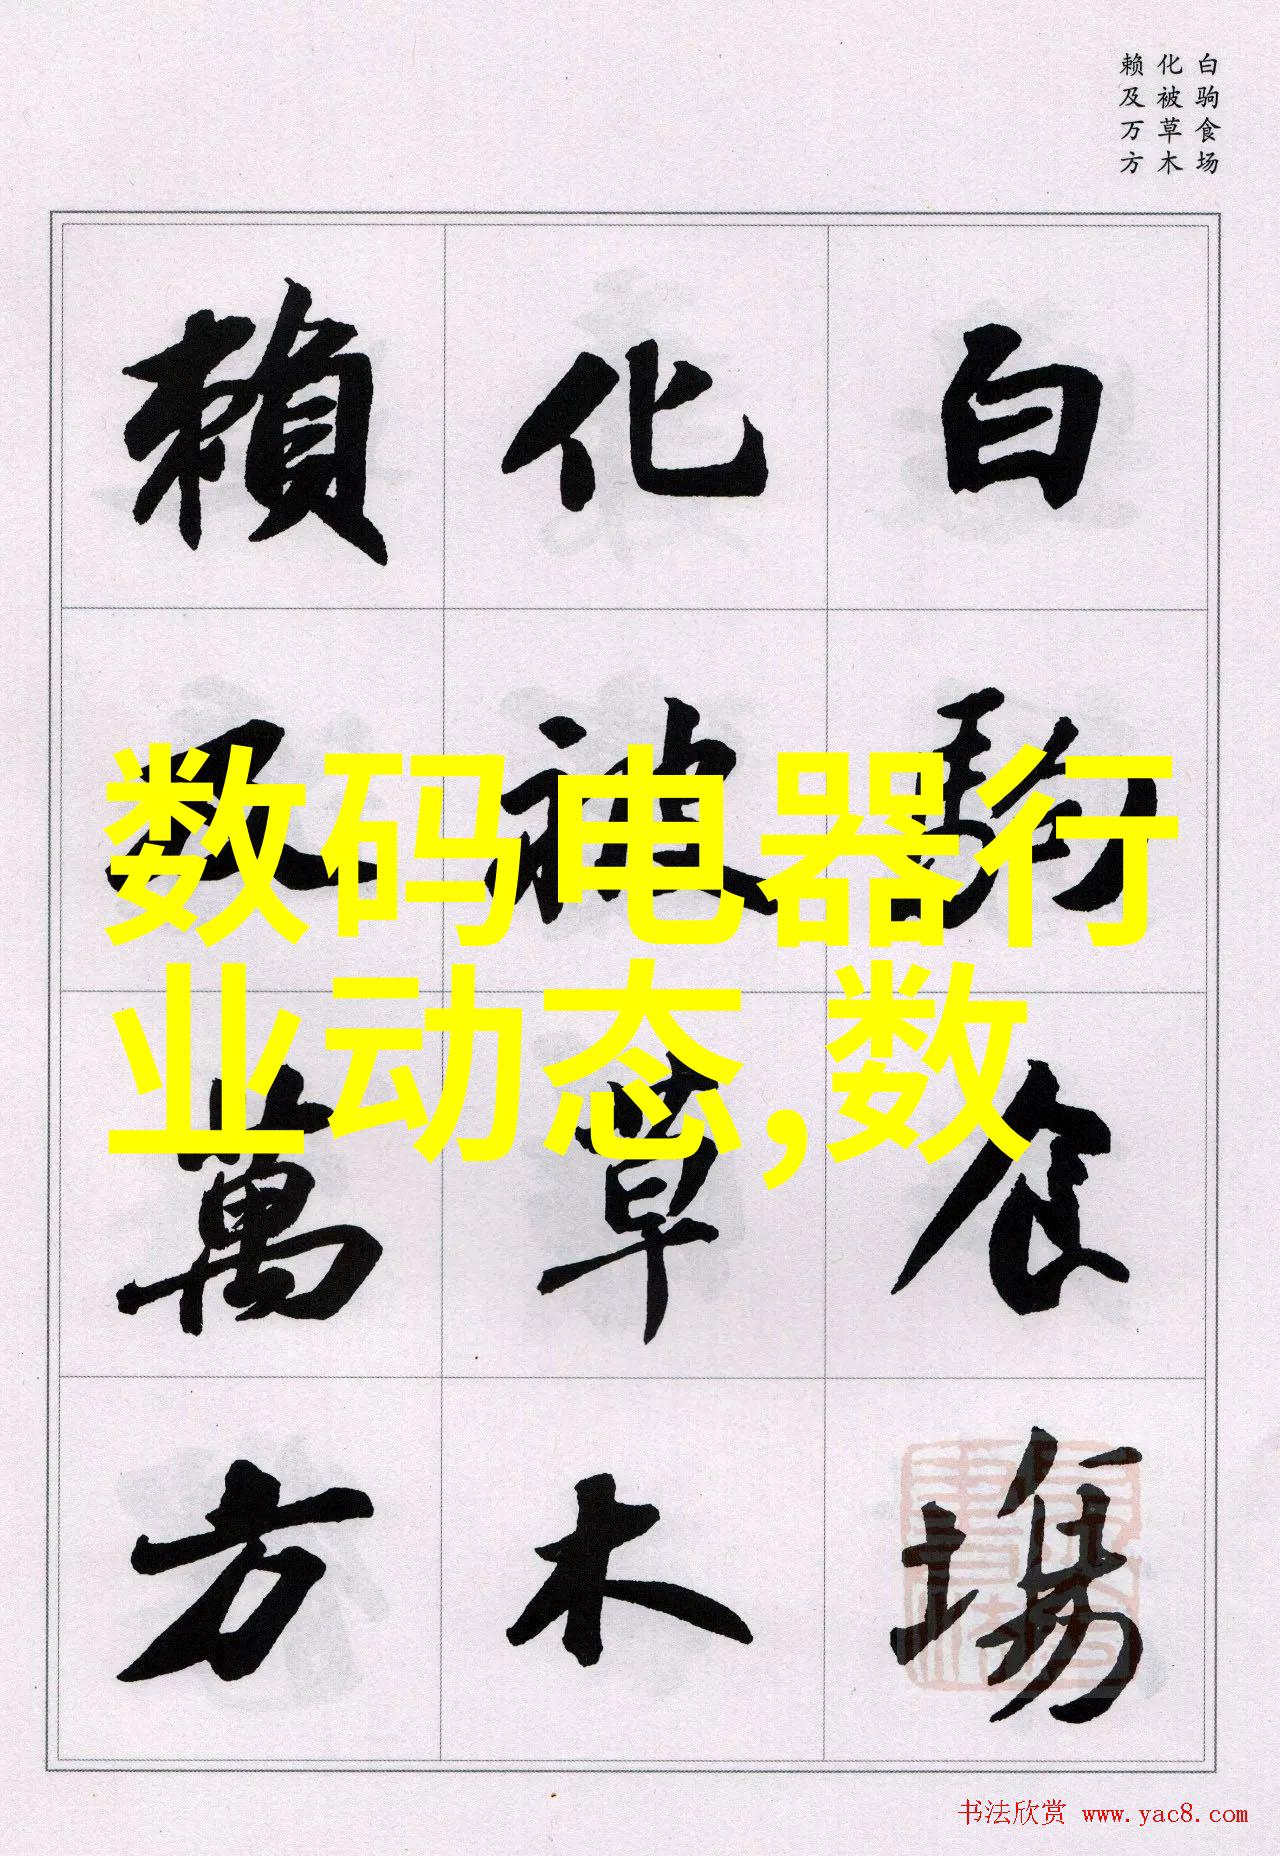 白驹食场
化被草木
赖及万方
白駒食場
化被草木
賴及萬方
数码电器行
业动态,数
书法欣赏 www.yac8.com